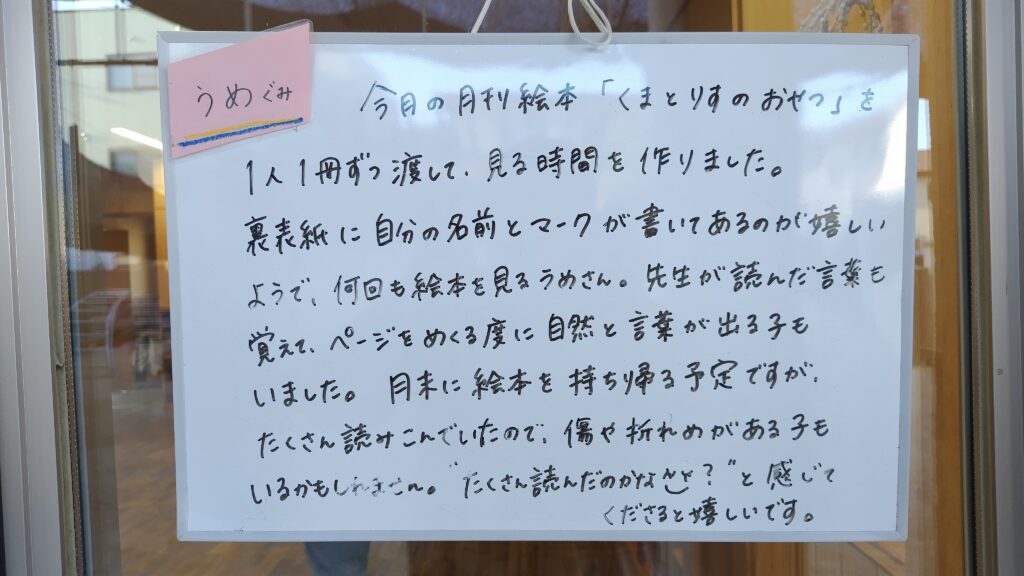 うめぐみ
今月の月刊絵本「くまとりすのおやつ」を
1人1冊ずつ渡して、見る時間を作りました。
裏表紙に自分の名前とマークが書いてあるのが嬉しい
ようで、何回も絵本を見るうめさん。先生が読んだ言葉も
覚えて、ページをめくる度に自然と言葉が出る子も
いました。月末に絵本を持ち帰る予定ですが、
たくさん読みこんでいたので、傷や折れめがある子も
いるかもしれません。"たくさん読んだのかな？"と感じて
くださると嬉しいです。